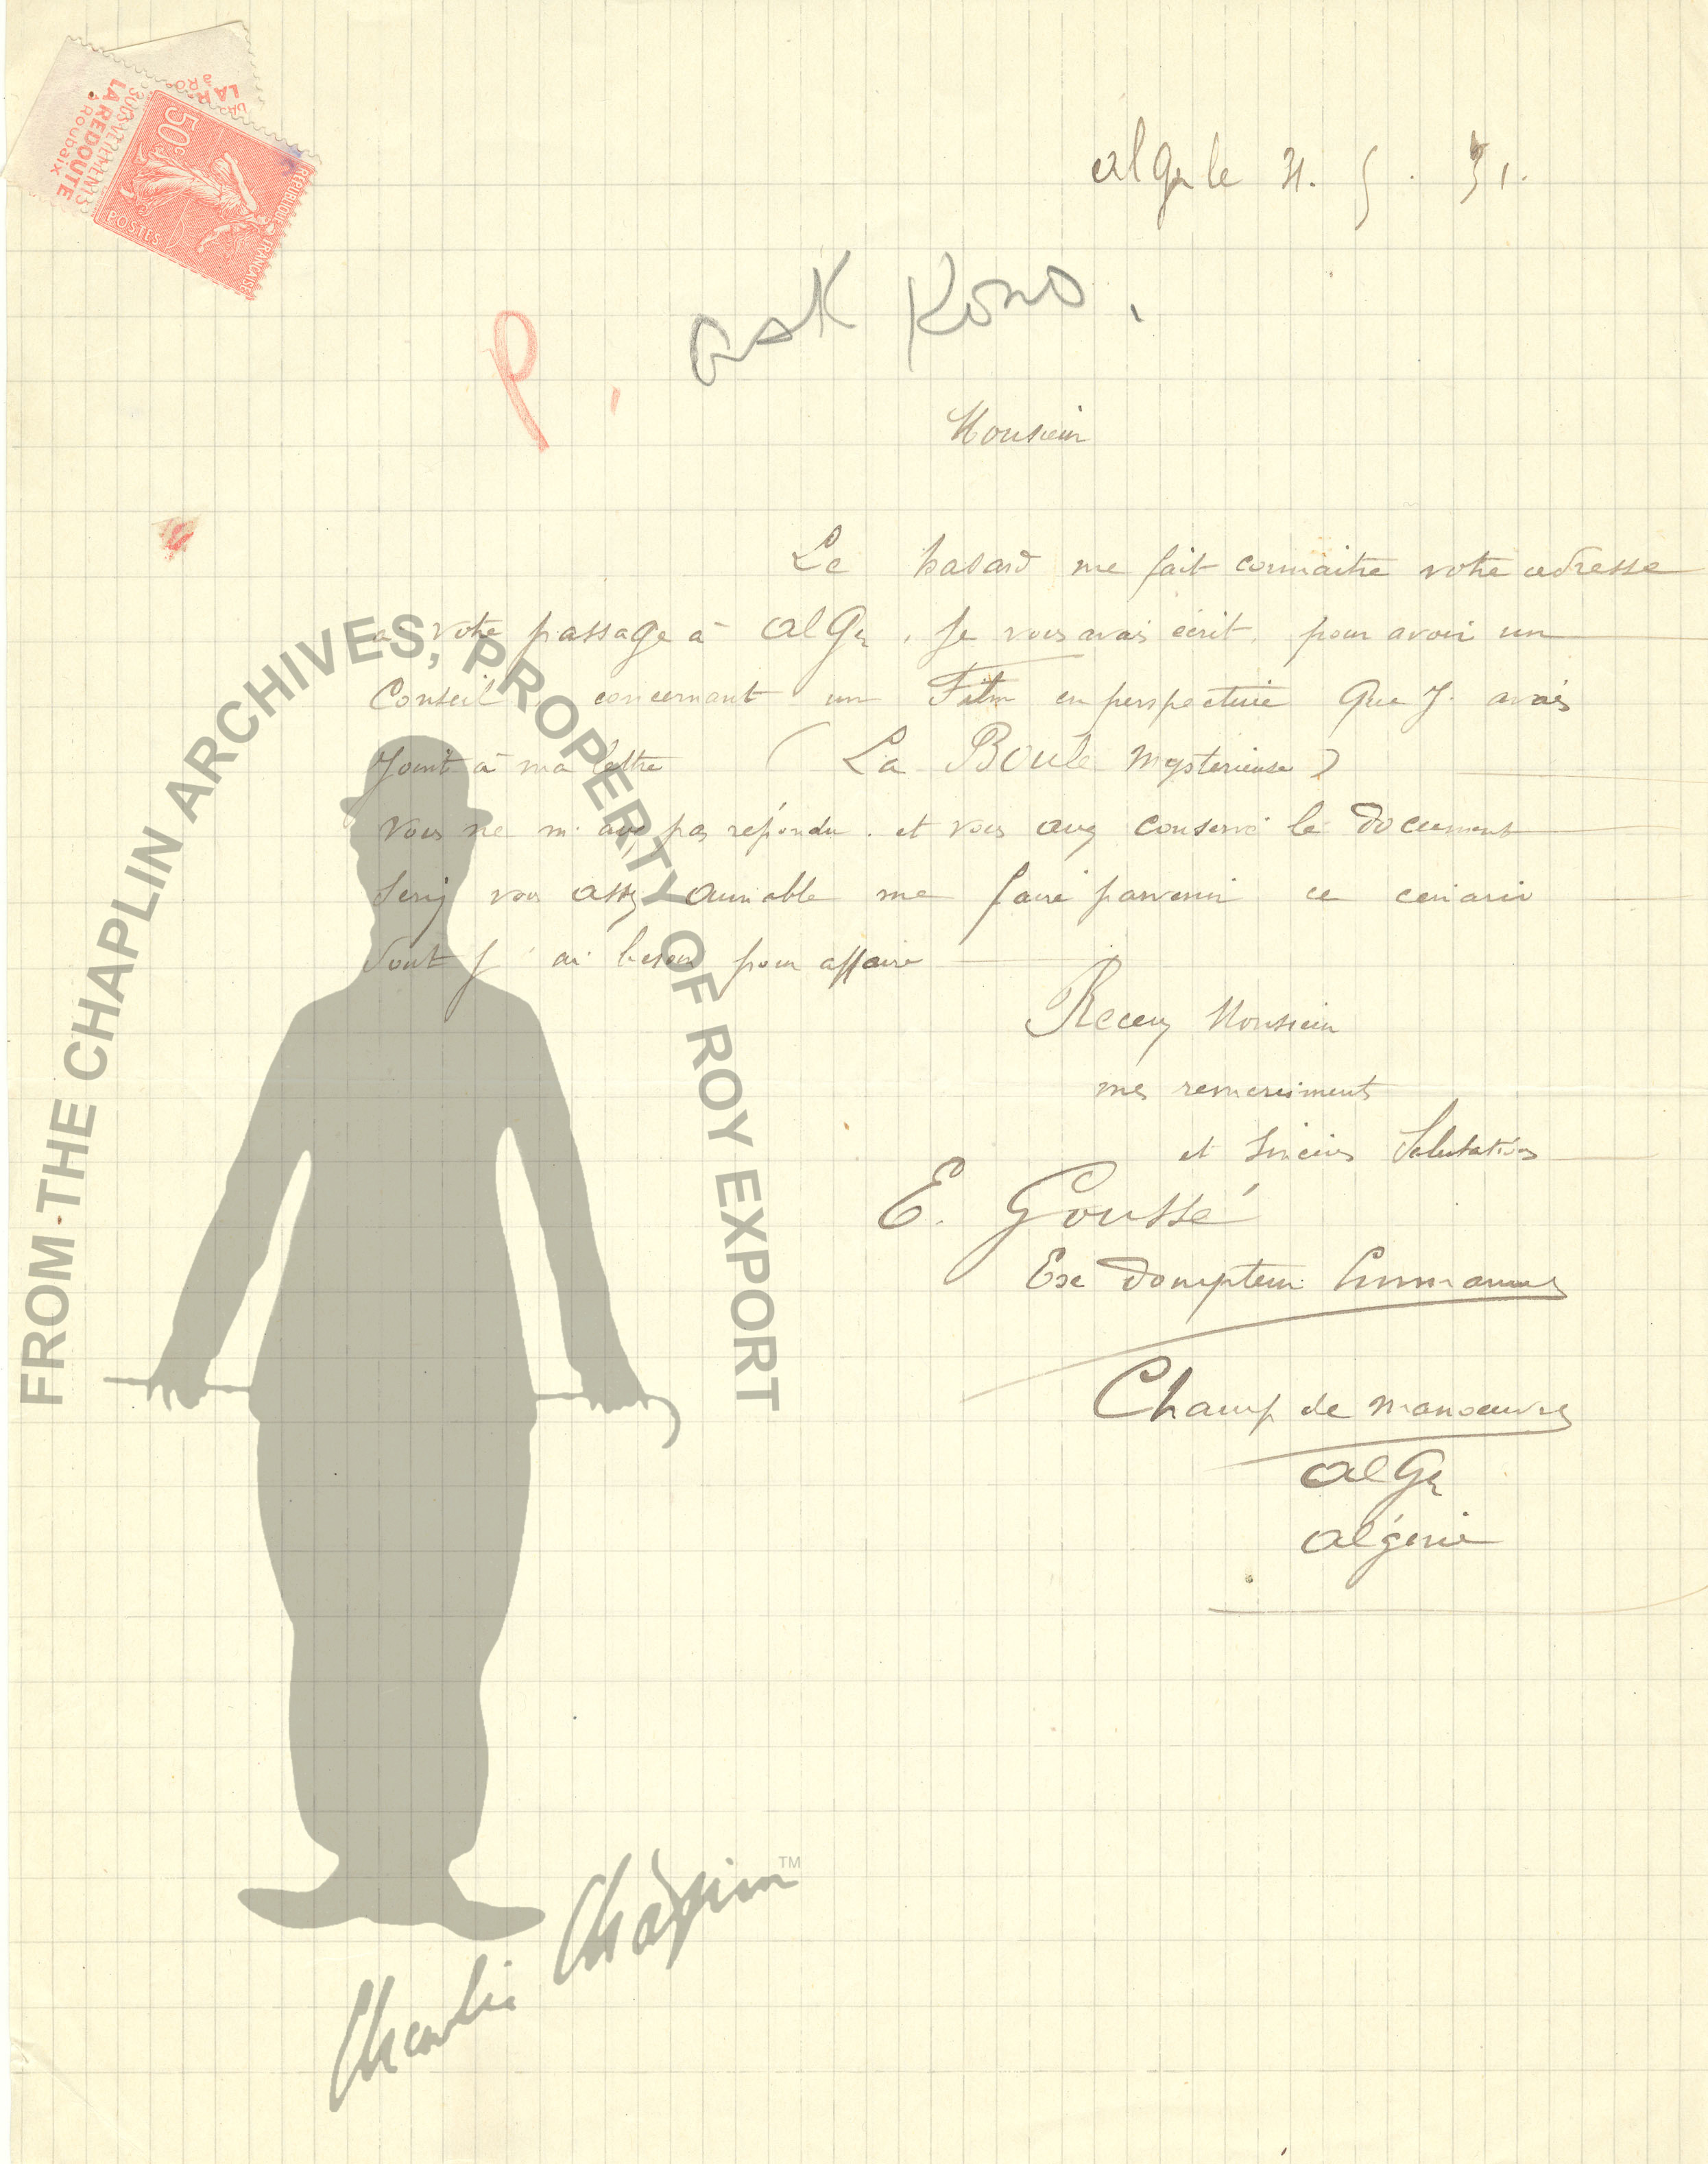 50c
POSTES
REPUBLIQUE FRANCAISE
LA REDOUTE
à ROUBAIX
Alger le 5. 31.
P. ask Kono.
Monsieur
Le hasard me fait connaitre votre adresse
a votre passage à Alger. Je vous avais écrit. pour avoir un
Conseil concernant un Film en perspective Que J. avais
Joint à ma lettre ( La Boule mysterieuse )
Vous ne m. avez pas répondu. et vous avez conservé le Document
Seriez vous assez aimable me faire parvenir ce cenario
Dont J'ai besoin pour affaire
Recevez Monsieur
mes remerciments
et sincères Salutations
E. Goussé
Ex Dompteur
Champ de manoeuvres
Alger
Algérie
FROM THE CHAPLIN ARCHIVES, PROPERTY OF ROY EXPORT
Charlie Chaplin™